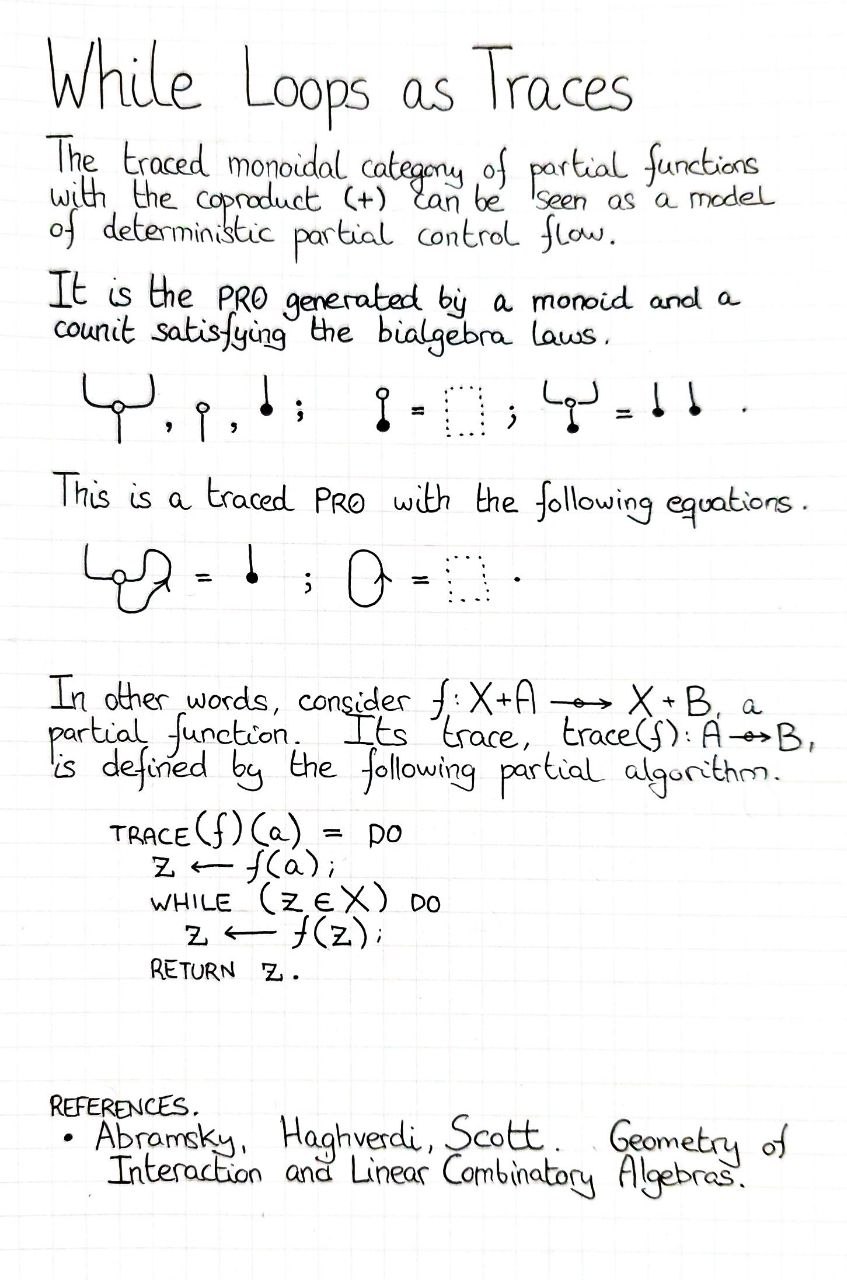 While Loops as Traces
The traced monoidal category of partial functions
with the coproduct (+) can be seen as a model
of deterministic partial control flow.
It is the PRO generated by a monoid and a
counit satisfying the bialgebra laws.
, , ; = ; = .
This is a traced PRO with the following equations.
= ; = .
In other words, consider f: X+A ⇸ X+B, a
partial function. Its trace, trace(f): A ⇸ B,
is defined by the following partial algorithm.
TRACE(f)(a) = DO
z ← f(a);
WHILE (z ∈ X) DO
z ← f(z);
RETURN z.
REFERENCES.
• Abramsky, Haghverdi, Scott. Geometry of
Interaction and Linear Combinatory Algebras.